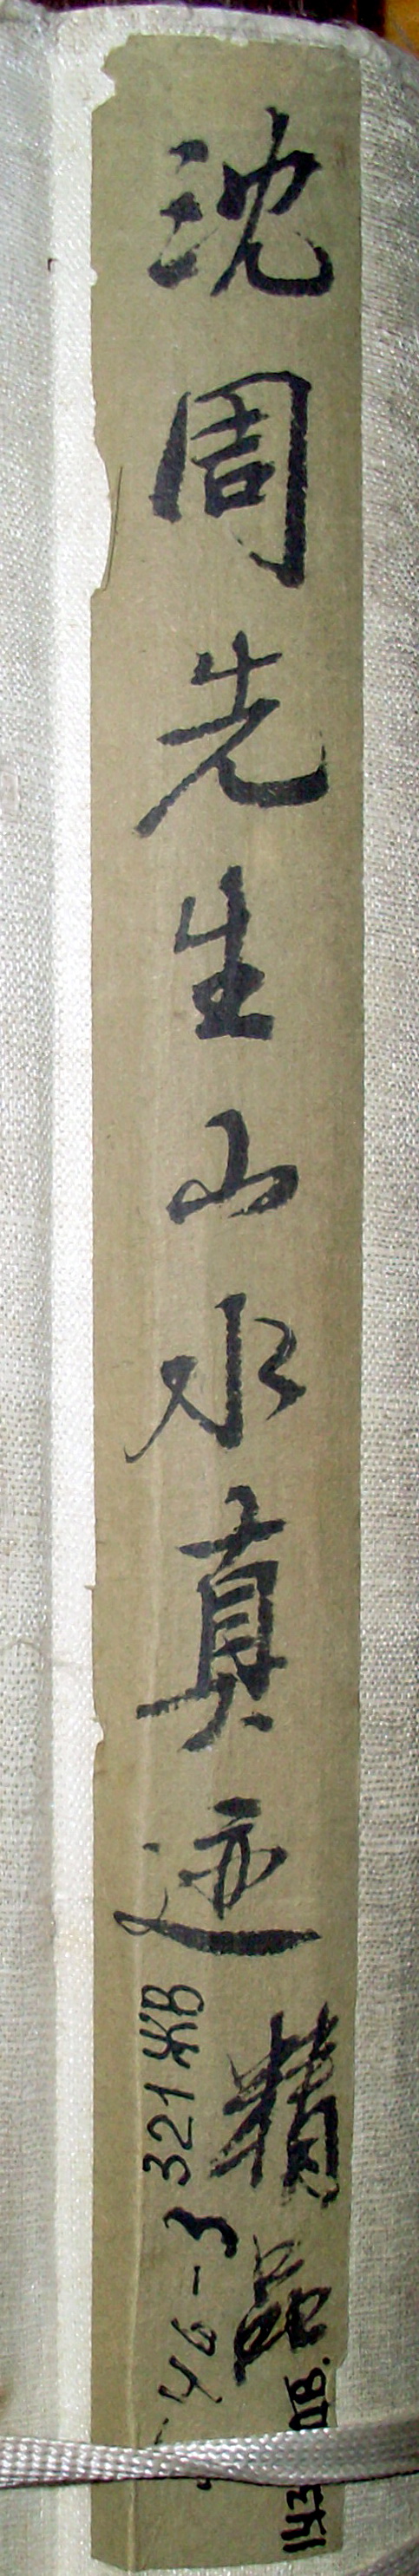 沈周先生山水真迹
精品
321 ЖВ
46-3